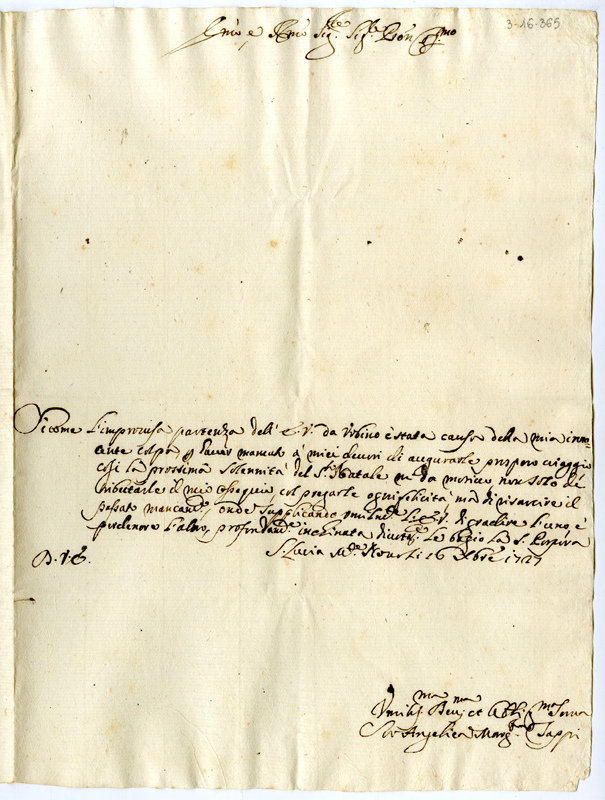 3-16-365
Emo e Rmo Sig.re Sig.re Pron
Sicome l'improvisa partenza dell' E. V. da Urbino è stata causa della mia inno=
cente colpa p haver mancato a' miei doveri di augurarle prospero viaggio
così la prossima solennità del S.to Natale mi dà motivo non solo di
tributarle il mio ossequio, col pregarle ogni felicità mà di risarcire il
passato mancam.to, onde supplicando l'E. V. di gradire l'uno e
l'altro, profondam.te inchinata le bagio la S. Porpora
D. V. E.
S. Lucia 16 Xbre 1727
Umilis.ma Dev.ma et Obli.ma Serva
Suor Angelica Marg.ta Zappi